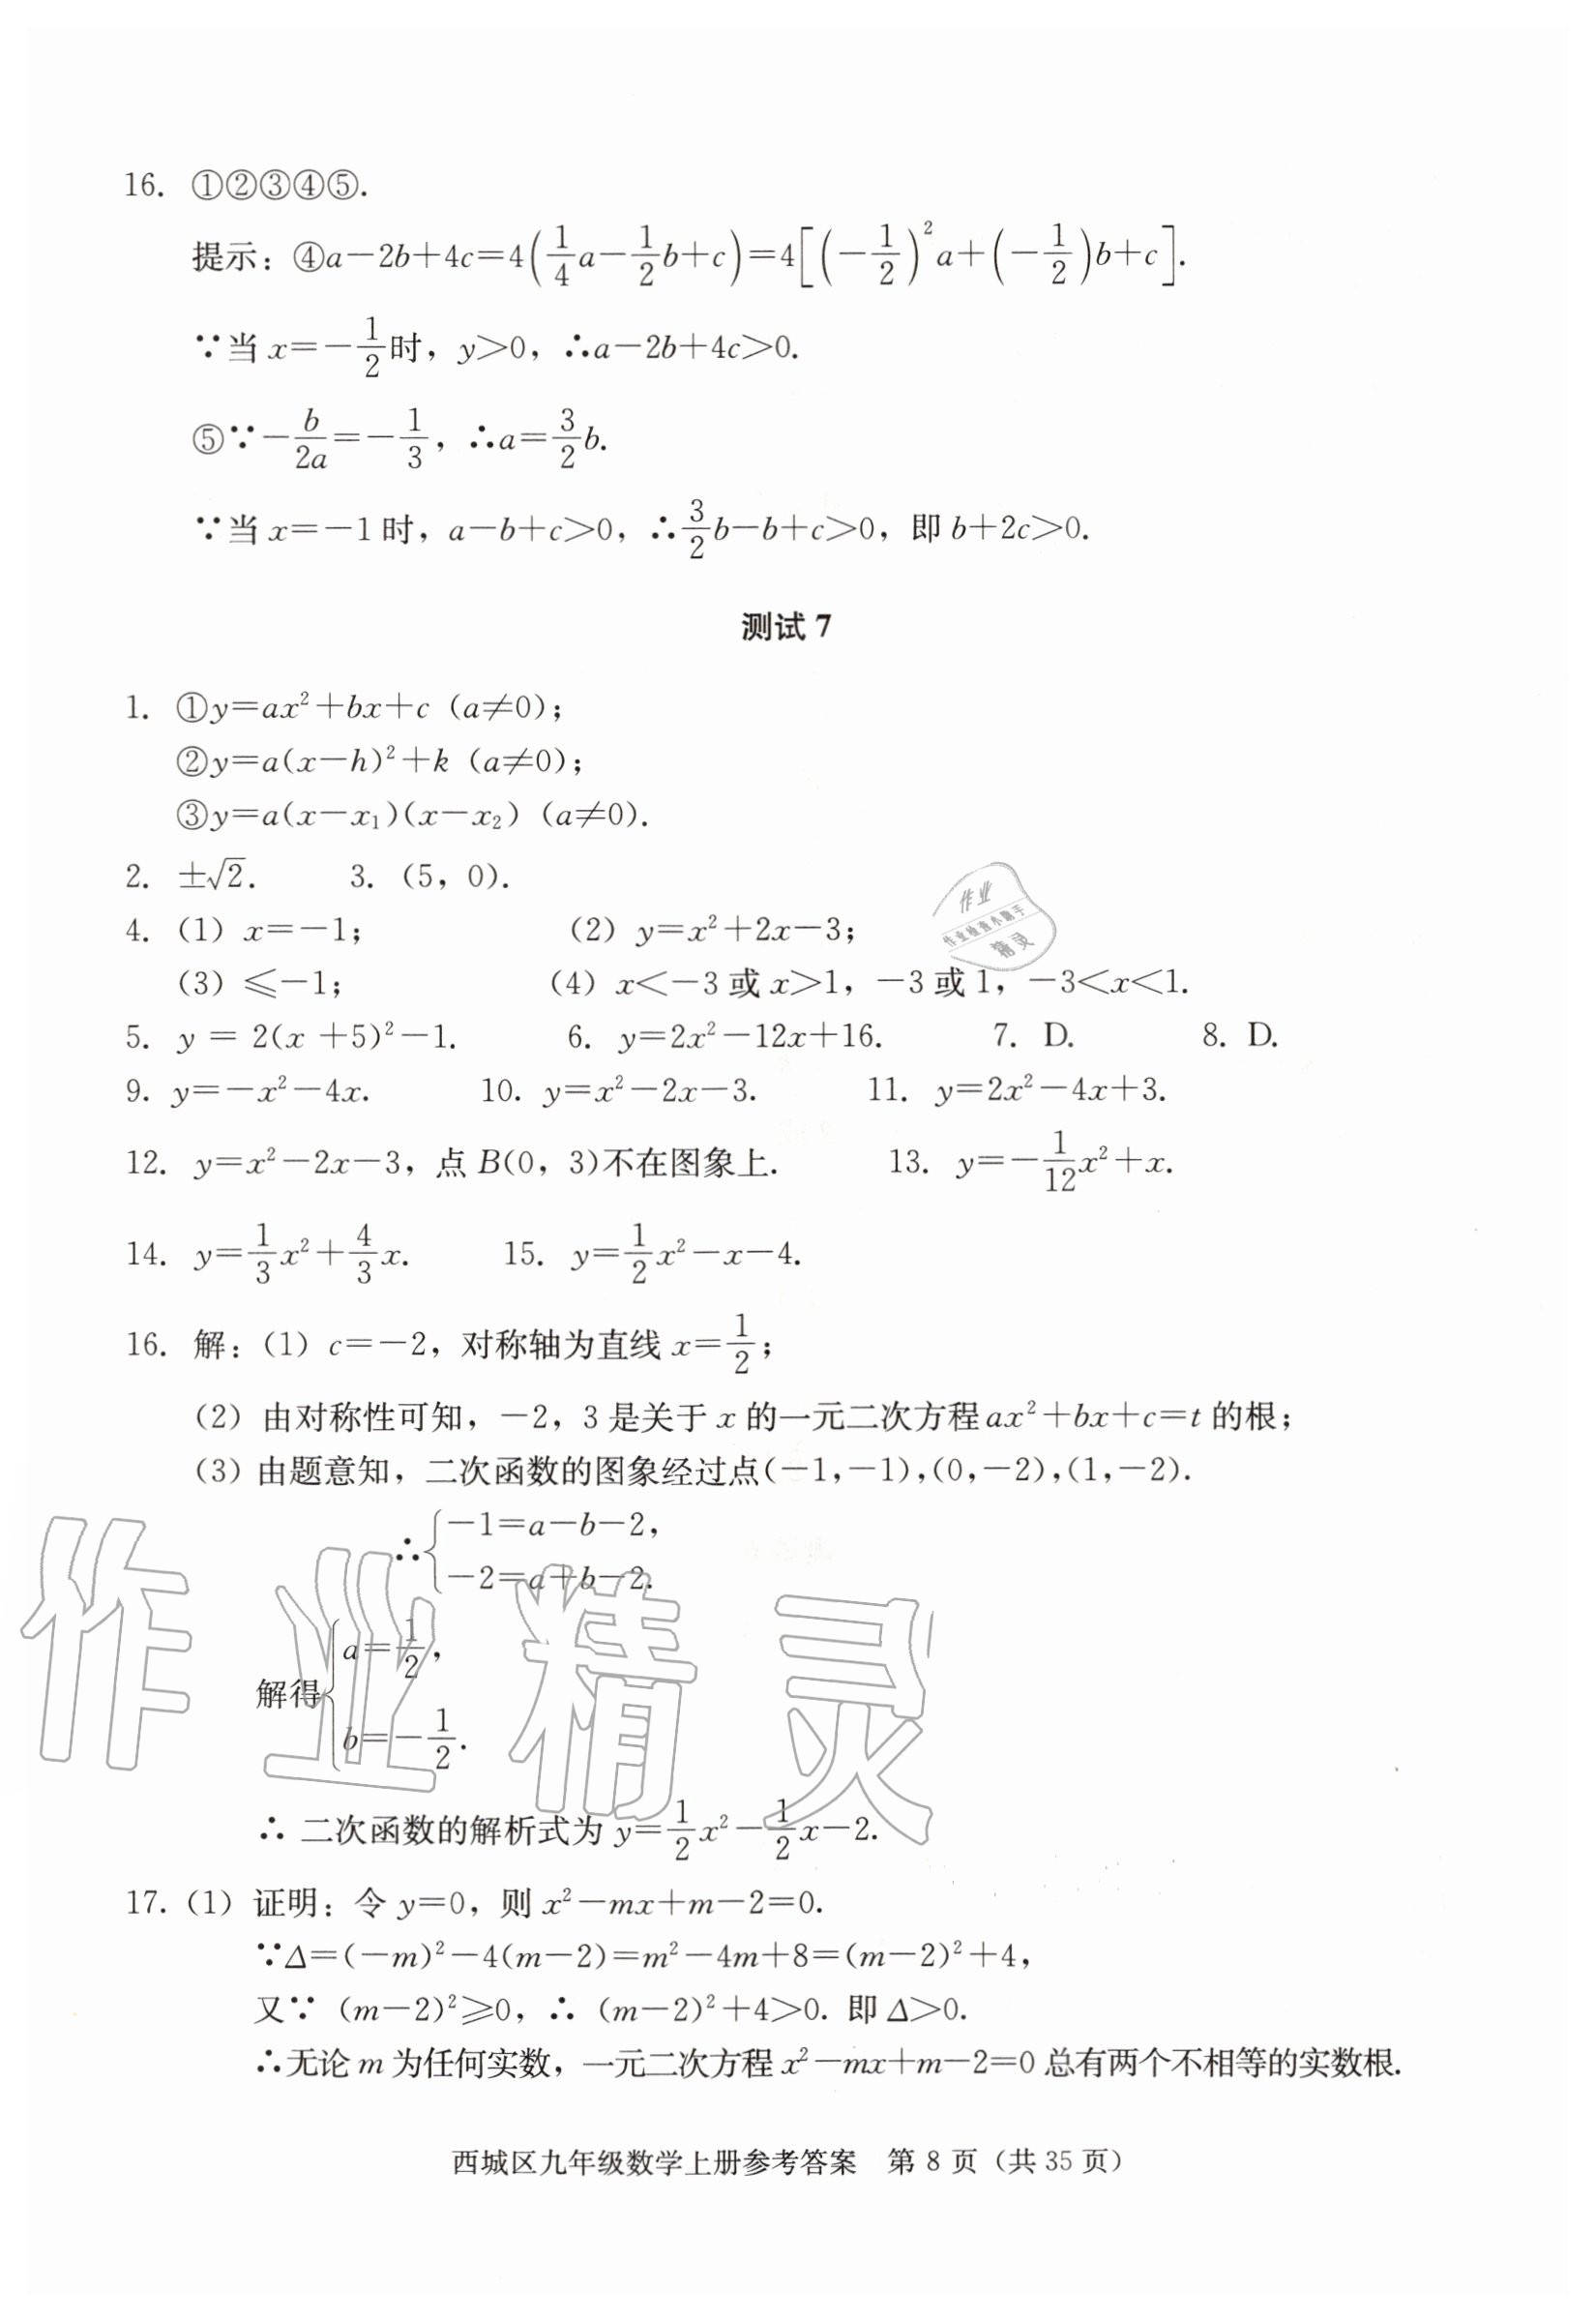 16. ①②③④⑤.
提示：④a－2b＋4c＝4(1/4 a－1/2 b＋c)＝4[(－1/2)²a＋(－1/2)b＋c].
∵当 x＝－1/2 时，y＞0，∴a－2b＋4c＞0.
⑤∵－b/2a＝－1/3，∴a＝3/2 b.
∵当 x＝－1 时，a－b＋c＞0，∴3/2 b－b＋c＞0，即 b＋2c＞0.
测试 7
1. ①y＝ax²＋bx＋c（a≠0）；
②y＝a(x－h)²＋k（a≠0）；
③y＝a(x－x₁)(x－x₂)（a≠0）.
2. ±√2. 3. （5，0）.
4. （1）x＝－1； （2）y＝x²＋2x－3；
（3）≤－1； （4）x＜－3 或 x＞1，－3 或 1，－3＜x＜1.
5. y ＝ 2(x ＋5)²－1. 6. y＝2x²－12x＋16. 7. D. 8. D.
9. y＝－x²－4x. 10. y＝x²－2x－3. 11. y＝2x²－4x＋3.
12. y＝x²－2x－3，点 B(0，3)不在图象上. 13. y＝－1/12 x²＋x.
14. y＝1/3 x²＋4/3 x. 15. y＝1/2 x²－x－4.
16. 解：（1）c＝－2，对称轴为直线 x＝1/2；
（2）由对称性可知，－2，3 是关于 x 的一元二次方程 ax²＋bx＋c＝t 的根；
（3）由题意知，二次函数的图象经过点(－1,－1),(0,－2),(1,－2).
∴{－1＝a－b－2，
－2＝a＋b－2.
解得{a＝1/2，
b＝－1/2.
∴ 二次函数的解析式为 y＝1/2 x²－1/2 x－2.
17.（1）证明：令 y＝0，则 x²－mx＋m－2＝0.
∵Δ＝(－m)²－4(m－2)＝m²－4m＋8＝(m－2)²＋4，
又∵ (m－2)²≥0，∴ (m－2)²＋4＞0. 即 Δ＞0.
∴无论 m 为任何实数，一元二次方程 x²－mx＋m－2＝0 总有两个不相等的实数根.
西城区九年级数学上册参考答案 第 8 页（共 35 页）
作业
作业检查小助手
精灵
作业精灵